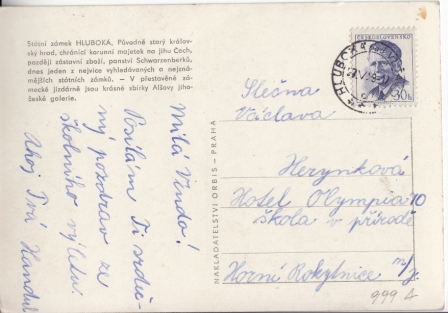 Státní zámek HLUBOKÁ, Původně starý králov-
ský hrad, chránící korunní majetek na jihu Čech,
později zástavní zboží, panství Schwarzenberků,
dnes jeden z nejvíce vyhledávaných a nejzná-
mějších státních zámků. — V přestavěné zá-
mecké jízdárně jsou krásné sbírky Alšovy jiho-
české galerie.
Milá Vendo!
Posílám Ti srdeč-
ný pozdrav ze
školního výletu.
Ahoj Tvá
NAKLADATELSTVÍ ORBIS - PRAHA
ČESKOSLOVENSKO
30h
HLUBOKÁ
Slečna
Václava
Herynková
Hotel Olympia
škola v přírodě
Horní Rokytnice n/J.
999 A